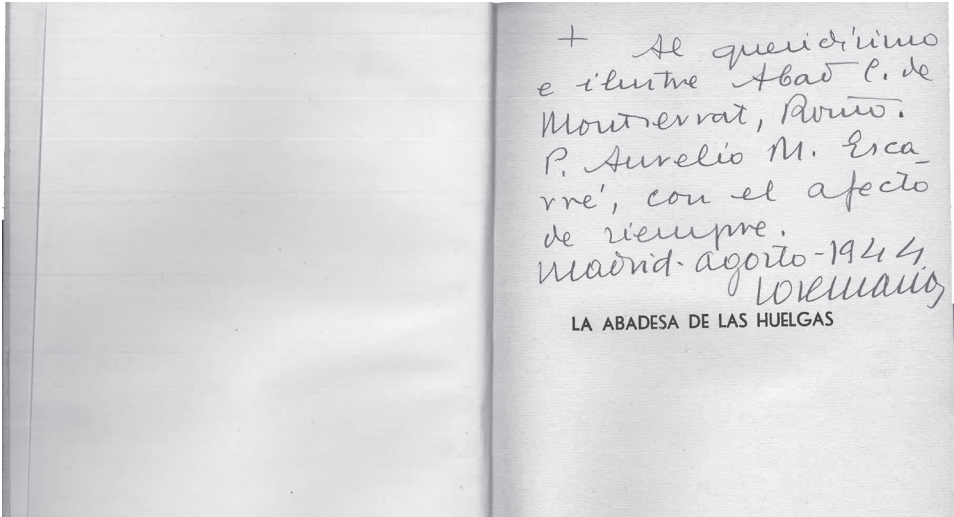 + Al queridísimo
e ilustre Abad C. de
Montserrat, Rvmo.
P. Aurelio M. Esca-
rré, con el afecto
de siempre.
Madrid - agosto - 1944
Josemaría
LA ABADESA DE LAS HUELGAS